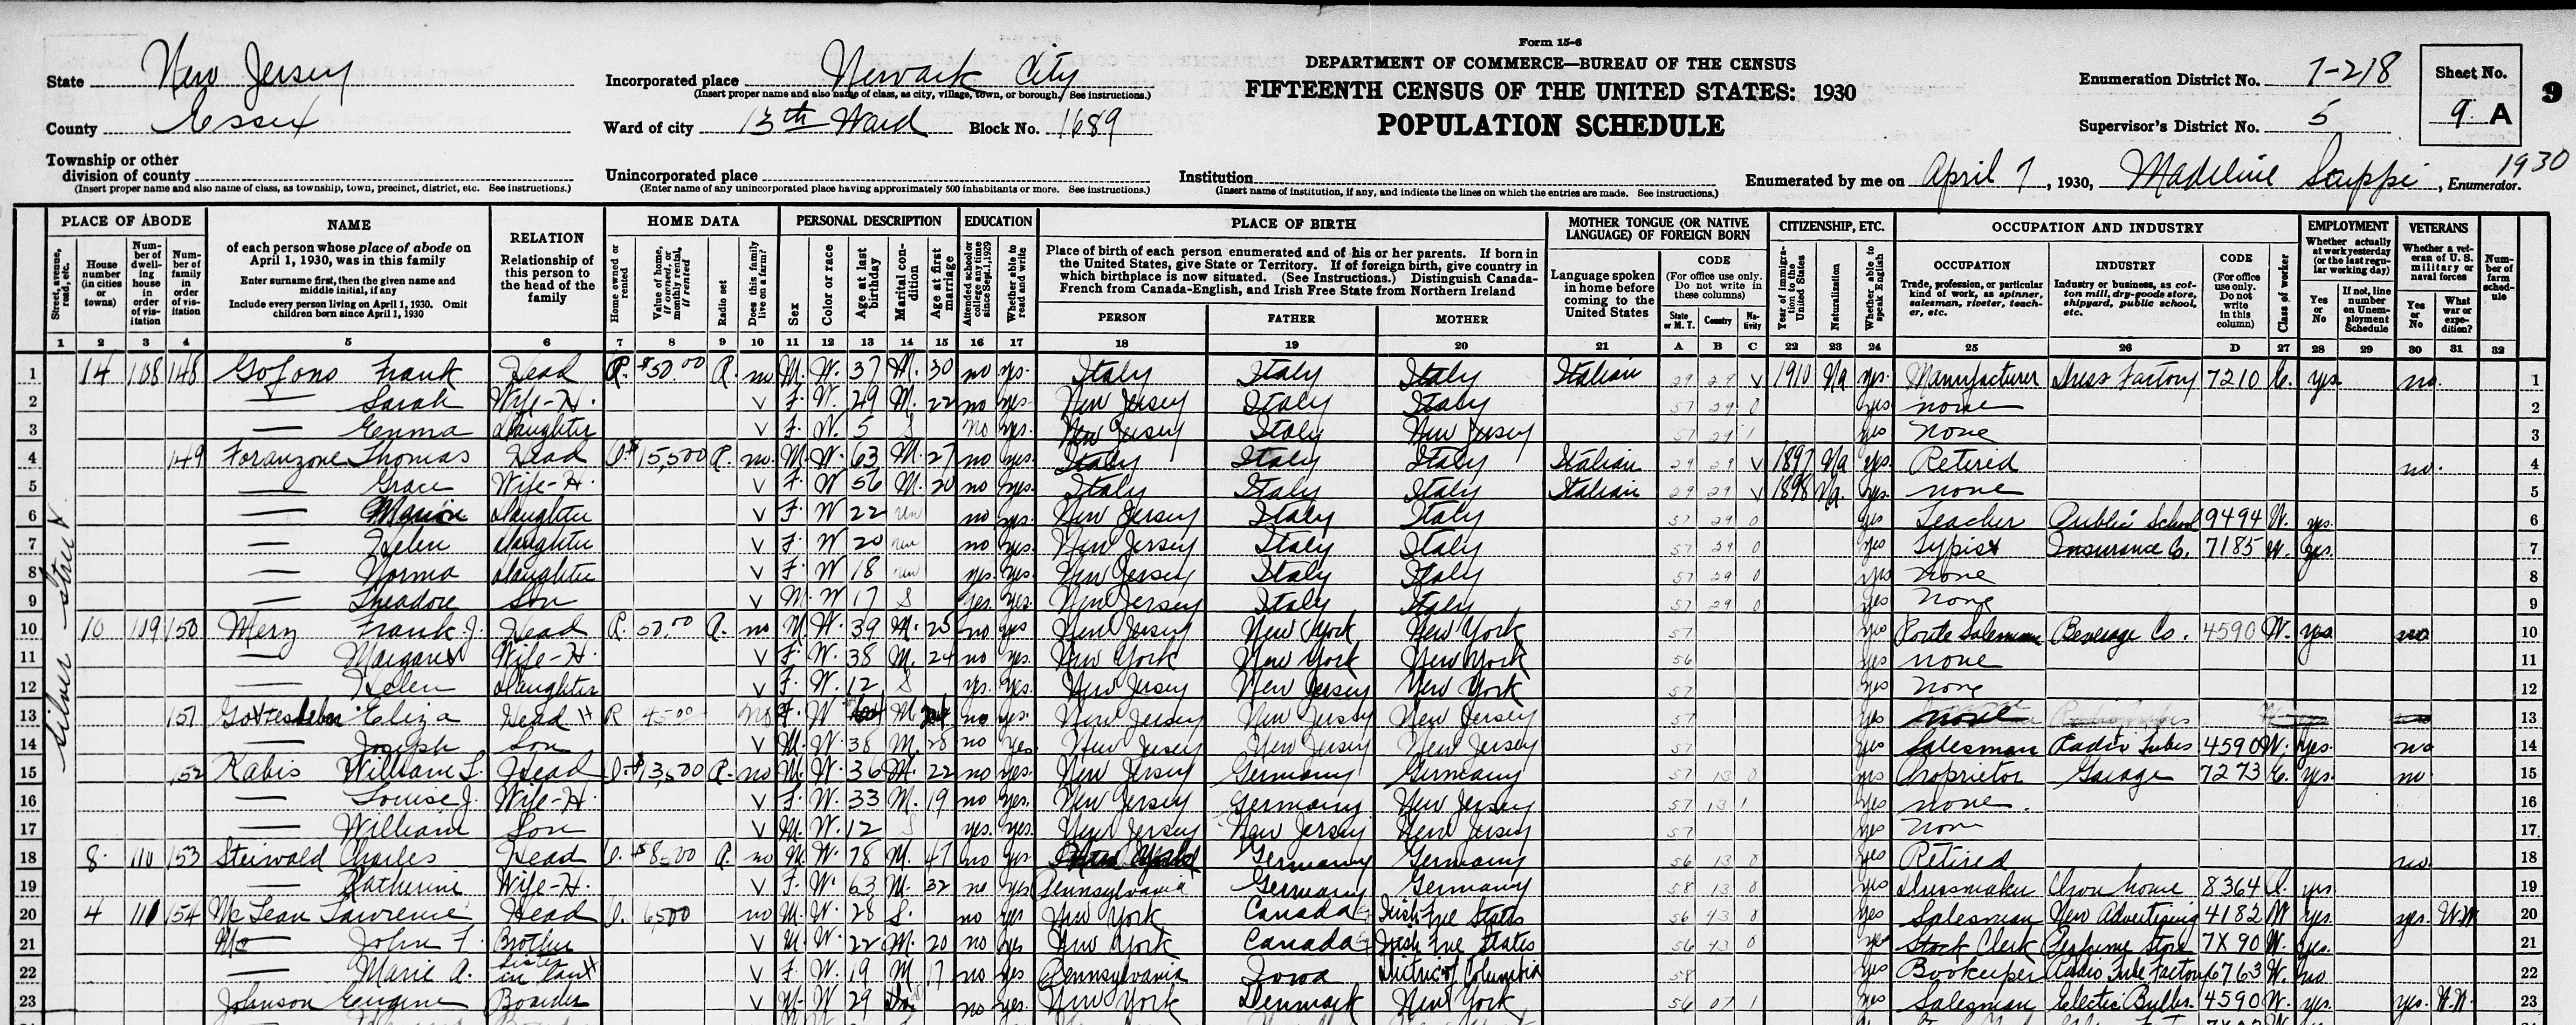 Form 15-6
DEPARTMENT OF COMMERCE—BUREAU OF THE CENSUS
FIFTEENTH CENSUS OF THE UNITED STATES: 1930
POPULATION SCHEDULE
State New Jersey
County Essex
Township or other division of county
(Insert proper name and also name of class, as township, town, precinct, district, etc. See instructions.)
Incorporated place Newark City
(Insert proper name and also name of class, as city, village, town, or borough. See instructions.)
Ward of city 13th Ward Block No. 1689
Unincorporated place
(Enter name of any unincorporated place having approximately 500 inhabitants or more. See instructions.)
Institution
(Insert name of institution, if any, and indicate the lines on which the entries are made. See instructions.)
Enumeration District No. 7-218
Supervisor's District No. 5
Sheet No. 9 A
9
Enumerated by me on April 7, 1930, Madeline , Enumerator.
1930
PLACE OF ABODE
Street, avenue, road, etc.
House number (in cities or towns)
Number of dwelling house in order of visitation
Number of family in order of visitation
NAME
of each person whose place of abode on April 1, 1930, was in this family
Enter surname first, then the given name and middle initial, if any
Include every person living on April 1, 1930. Omit children born since April 1, 1930
RELATION
Relationship of this person to the head of the family
HOME DATA
Home owned or rented
Value of home, if owned, or monthly rental, if rented
Radio set
Does this family live on a farm?
PERSONAL DESCRIPTION
Sex
Color or race
Age at last birthday
Marital condition
Age at first marriage
EDUCATION
Attended school or college any time since Sept. 1, 1929
Whether able to read and write
PLACE OF BIRTH
Place of birth of each person enumerated and of his or her parents. If born in the United States, give State or Territory. If of foreign birth, give country in which birthplace is now situated. (See Instructions.) Distinguish Canada-French from Canada-English, and Irish Free State from Northern Ireland
PERSON FATHER MOTHER
MOTHER TONGUE (OR NATIVE LANGUAGE) OF FOREIGN BORN
Language spoken in home before coming to the United States
CODE
(For office use only. Do not write in these columns)
State or M. T. Country Nativity
CITIZENSHIP, ETC.
Year of immigration to the United States
Naturalization
Whether able to speak English
OCCUPATION AND INDUSTRY
OCCUPATION
Trade, profession, or particular kind of work, as spinner, salesman, riveter, teacher, etc.
INDUSTRY
Industry or business, as cotton mill, dry-goods store, shipyard, public school, etc.
CODE
(For office use only. Do not write in this column)
Class of worker
EMPLOYMENT
Whether actually at work yesterday (or the last regular working day)
Yes or No
If not, line number on Unemployment Schedule
VETERANS
Whether a veteran of U. S. military or naval forces
Yes or No
What war or expedition?
Number of farm schedule
1 2 3 4 5 6 7 8 9 10 11 12 13 14 15 16 17 18 19 20 21 A B C 22 23 24 25 26 D 27 28 29 30 31 32
Silver Street
1 14 108 148 Frank Head R. $50.00 R. no M. W. 37 M. 30 no yes Italy Italy Italy Italian 29 29 V 1910 Na yes Manufacturer Dress Factory 7210 yes no 1
2 — Sarah Wife-H. V F. W. 29 M. 22 no yes New Jersey Italy Italy 57 29 0 yes none 2
3 — Emma Daughter V F. W. 5 S no yes New Jersey Italy New Jersey 57 29 1 yes none 3
4 149 Foranzone Thomas Head O $15,500 R. no M. W. 63 M. 27 no yes Italy Italy Italy Italian 29 29 V 1897 Na yes Retired no 4
5 — Grace Wife-H. V F. W 56 M. 20 no yes Italy Italy Italy Italian 29 29 V 1898 Na. yes none 5
6 — Daughter V F. W 22 no yes New Jersey Italy Italy 57 29 0 yes Teacher Public School 9494 W. yes 6
7 — Helen Daughter V F. W 20 no yes New Jersey Italy Italy 57 29 0 yes Typist Insurance Co. 7185 W. yes 7
8 — Norma Daughter V F. W 18 yes yes New Jersey Italy Italy 57 29 0 yes none 8
9 — Theadore Son V M. W 17 S yes yes New Jersey Italy Italy 57 29 0 yes none 9
10 10 109 150 Merz Frank J. Head R. 50.00 R. no M. W. 39 M. 25 no yes New Jersey New York New York 57 yes Route Salesman Beverage Co. 4590 W. yes no 10
11 — Margaret Wife-H. V F. W. 38 M. 24 no yes New York New York New York 56 yes none 11
12 — Helen Daughter V F. W. 12 S yes yes New Jersey New Jersey New York 57 yes none 12
13 151 Eliza Head H R 45.00 no F. W M no yes New Jersey New Jersey New Jersey 57 yes none 13
14 — Joseph Son V M. W. 38 M. 28 no yes New Jersey New Jersey New Jersey 57 yes Salesman Radio Tubes 4590 W. yes no 14
15 152 Kabis William L. Head O $13,500 R. no M. W. 36 M. 22 no yes New Jersey Germany Germany 57 13 0 yes Proprietor Garage 7273 yes no 15
16 — Louise J. Wife-H. V F. W. 33 M. 19 no yes New Jersey Germany New Jersey 57 13 1 yes none 16
17 — William Son V M. W. 12 S yes yes New Jersey New Jersey New Jersey 57 yes none 17
18 8 110 153 Steiwald Charles Head O. $8500 R. no M. W. 78 M. 47 no yes Germany Germany 56 13 0 yes Retired no 18
19 — Katherine Wife-H. V F. W. 63 M. 32 no yes Pennsylvania Germany Germany 58 13 0 yes Dressmaker Own home 8364 O. yes 19
20 4 111 154 McLean Lawrence Head O. 6500 no M. W. 28 S. no yes New York Canada Irish Free States 56 43 0 yes Salesman Advertising 4182 W yes yes W.W 20
21 Mc— John F. Brother V M. W. 22 M. 20 no yes New York Canada Irish Free States 56 43 0 yes Stock Clerk Perfume Store 7X90 W. yes 21
22 — Marie A. Sister in law V F. W. 19 M 17 no yes Pennsylvania Iowa District of Columbia 58 yes Bookeeper Radio Tube Factory 6763 W. no 22
23 Johnson Eugene Boarder V M. W 29 no yes New York Denmark New York 56 07 1 yes Salesman Electric Bulbs 4590 W. yes yes W.W. 23